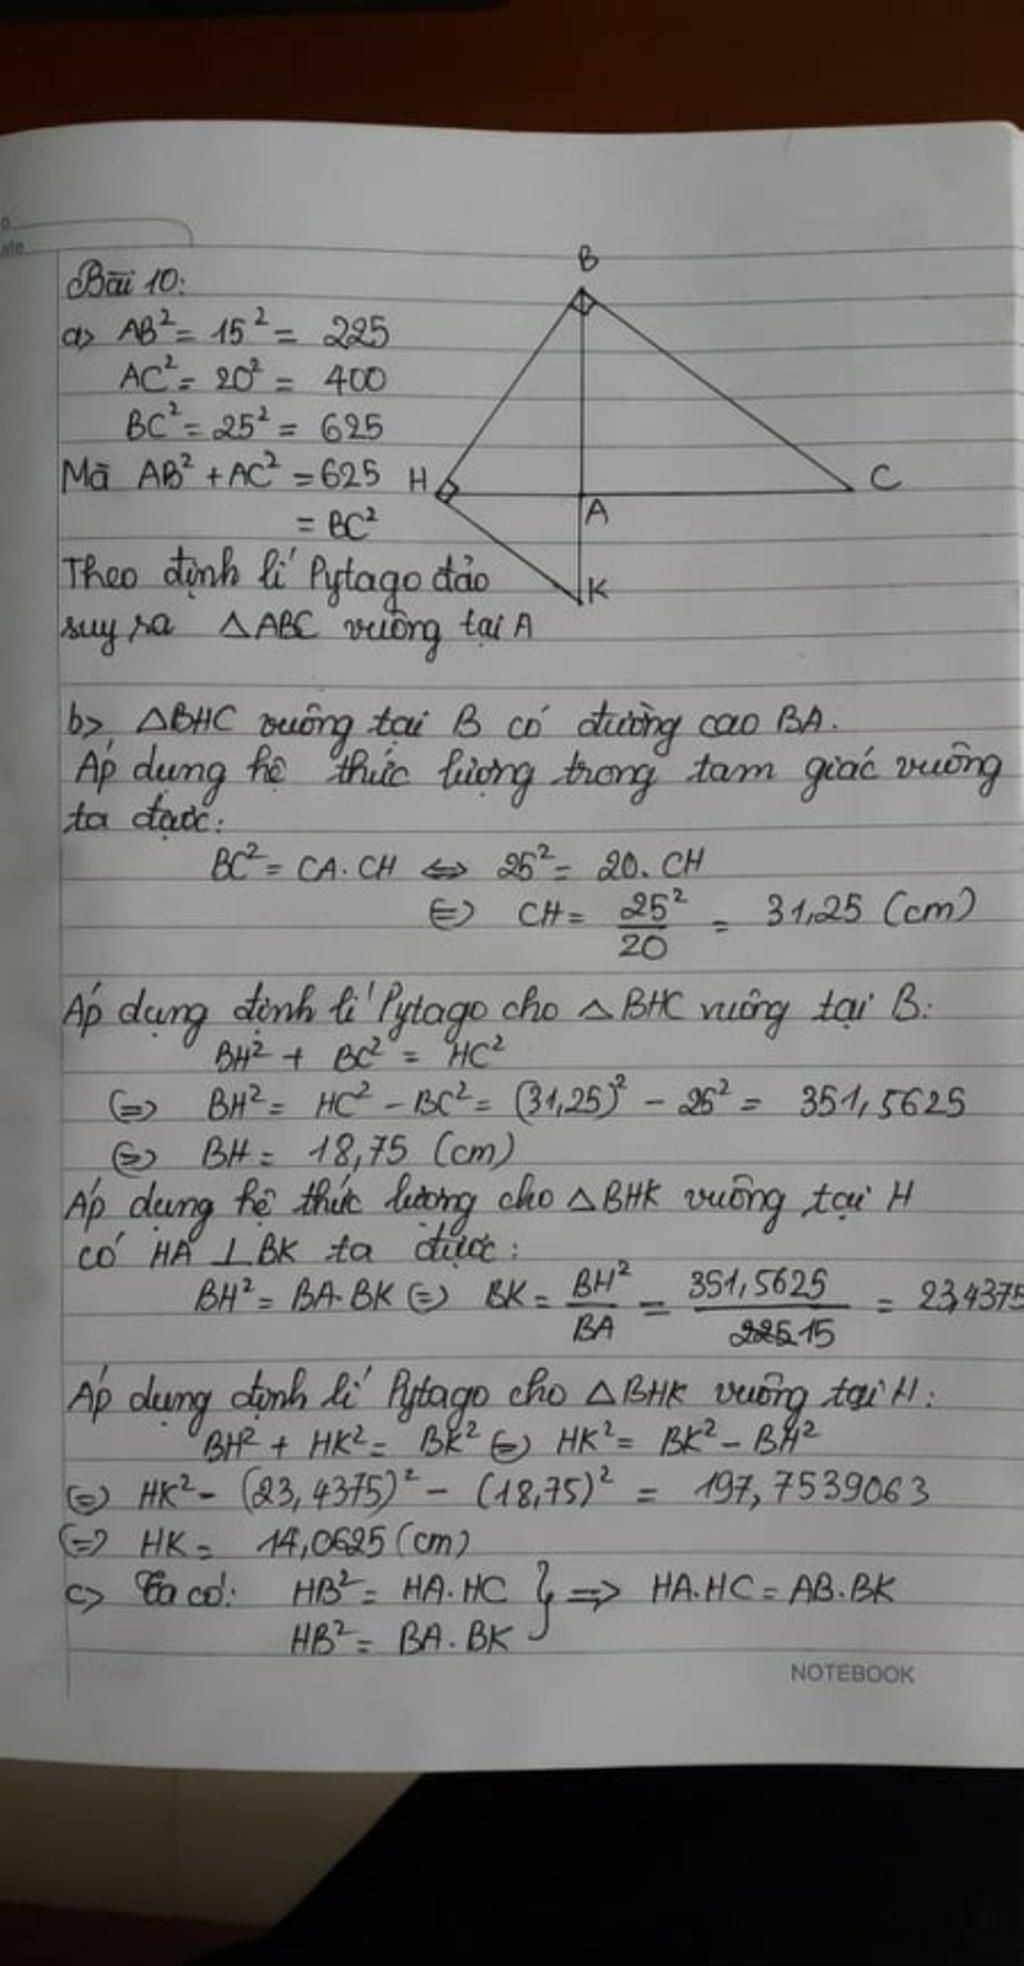 Bài 10:
B
a> AB² = 15² = 225
AC² = 20² = 400
BC² = 25² = 625
Mà AB² + AC² = 625
H
C
A
= BC²
Theo định lí Pytago đảo
K
suy ra △ABC vuông tại A
b> △BHC vuông tại B có đường cao BA.
Áp dụng hệ thức lượng trong tam giác vuông
ta được:
BC² = CA.CH ⇔ 25² = 20.CH
⇔ CH = 25²/20 = 31,25 (cm)
Áp dụng định lí Pytago cho △BHC vuông tại B:
BH² + BC² = HC²
⇔ BH² = HC² - BC² = (31,25)² - 25² = 351,5625
⇔ BH = 18,75 (cm)
Áp dụng hệ thức lượng cho △BHK vuông tại H
có HA ⊥ BK ta được:
BH² = BA.BK ⇔ BK = BH²/BA = 351,5625/15 = 23,4375
Áp dụng định lí Pytago cho △BHK vuông tại H:
BH² + HK² = BK² ⇔ HK² = BK² - BH²
⇔ HK² = (23,4375)² - (18,75)² = 197,7539063
⇔ HK = 14,0625 (cm)
c> Ta có: HB² = HA.HC } => HA.HC = AB.BK
HB² = BA.BK
NOTEBOOK